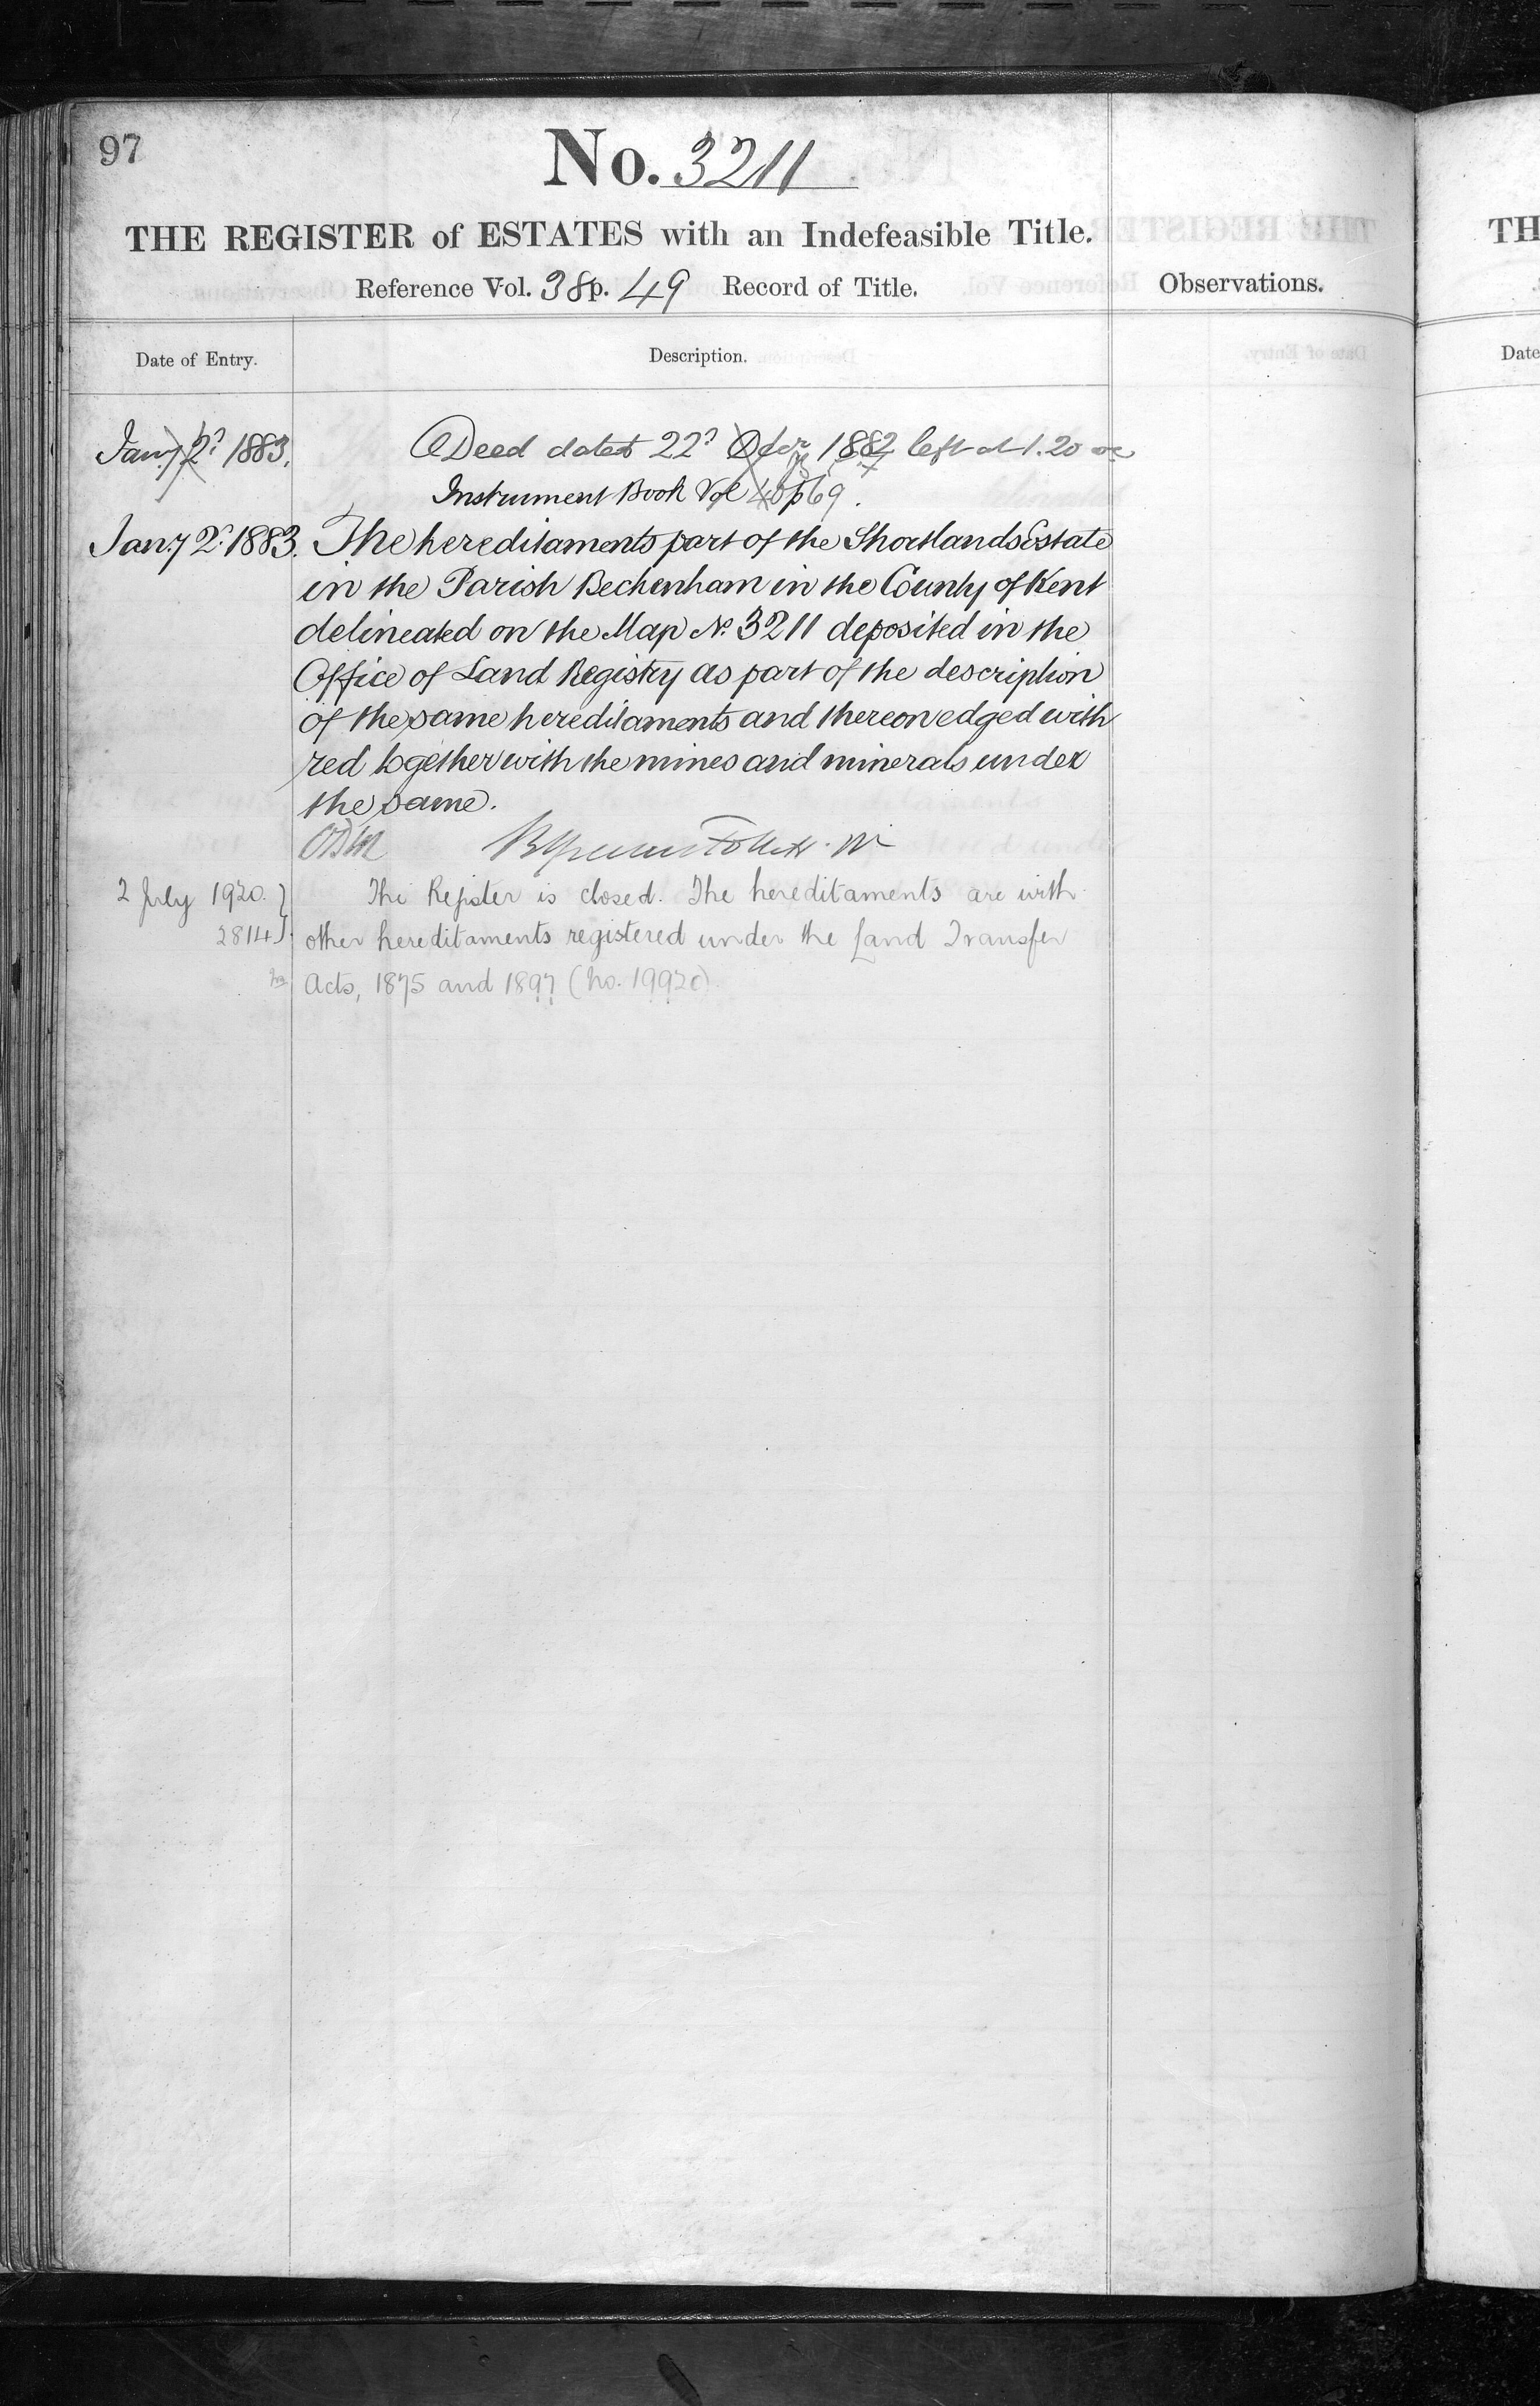 97
No. 3211
THE REGISTER of ESTATES with an Indefeasible Title.
Reference Vol. 38 p. 49 Record of Title.
Observations.
Date of Entry.
Description.
Jany 2d 1883. Deed dated 22d 1882 left at 1.20
Instrument Book Vol 40 p 69.
Jany 2d 1883. The hereditaments part of the Shortlands Estate
in the Parish Beckenham in the County of Kent
delineated on the Map No. 3211 deposited in the
Office of Land Registry as part of the description
of the same hereditaments and thereon edged with
red together with the mines and minerals under
the same.
2 July 1920. } The Register is closed. The hereditaments are with
2814 } other hereditaments registered under the Land Transfer
Acts, 1875 and 1897 (No. 19920).
TH
Date